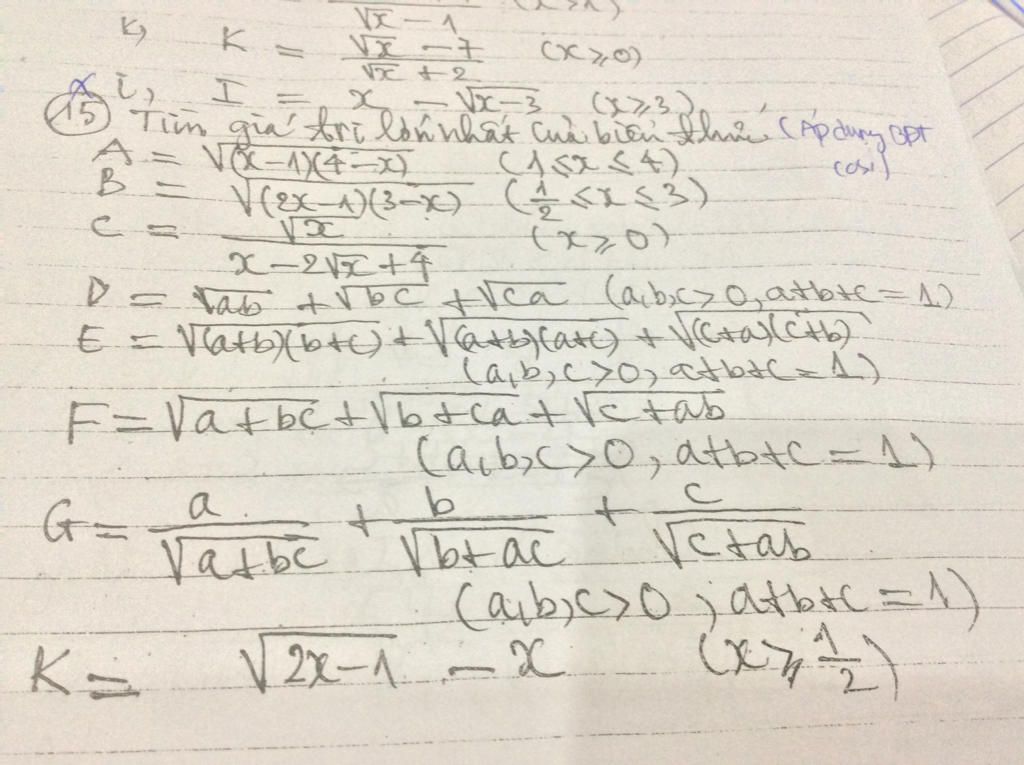 √x − 1 (x > 1)
k, K = (√x − 7)/(√x + 2) (x ≥ 0)
i, I = x − √(x−3) (x ≥ 3)
15 Tìm giá trị lớn nhất của biểu thức (Áp dụng BĐT
cosi)
A = √((x−1)(4−x)) (1 ≤ x ≤ 4)
B = √((2x−1)(3−x)) (1/2 ≤ x ≤ 3)
C = √x/(x−2√x+4) (x ≥ 0)
D = √ab + √bc + √ca (a,b,c > 0, a+b+c = 1)
E = √((a+b)(b+c)) + √((a+b)(a+c)) + √((c+a)(c+b))
(a,b,c > 0, a+b+c = 1)
F = √(a+bc) + √(b+ca) + √(c+ab)
(a,b,c > 0, a+b+c = 1)
G = a/√(a+bc) + b/√(b+ac) + c/√(c+ab)
(a,b,c > 0; a+b+c = 1)
K = √(2x−1) − x (x ≥ 1/2)